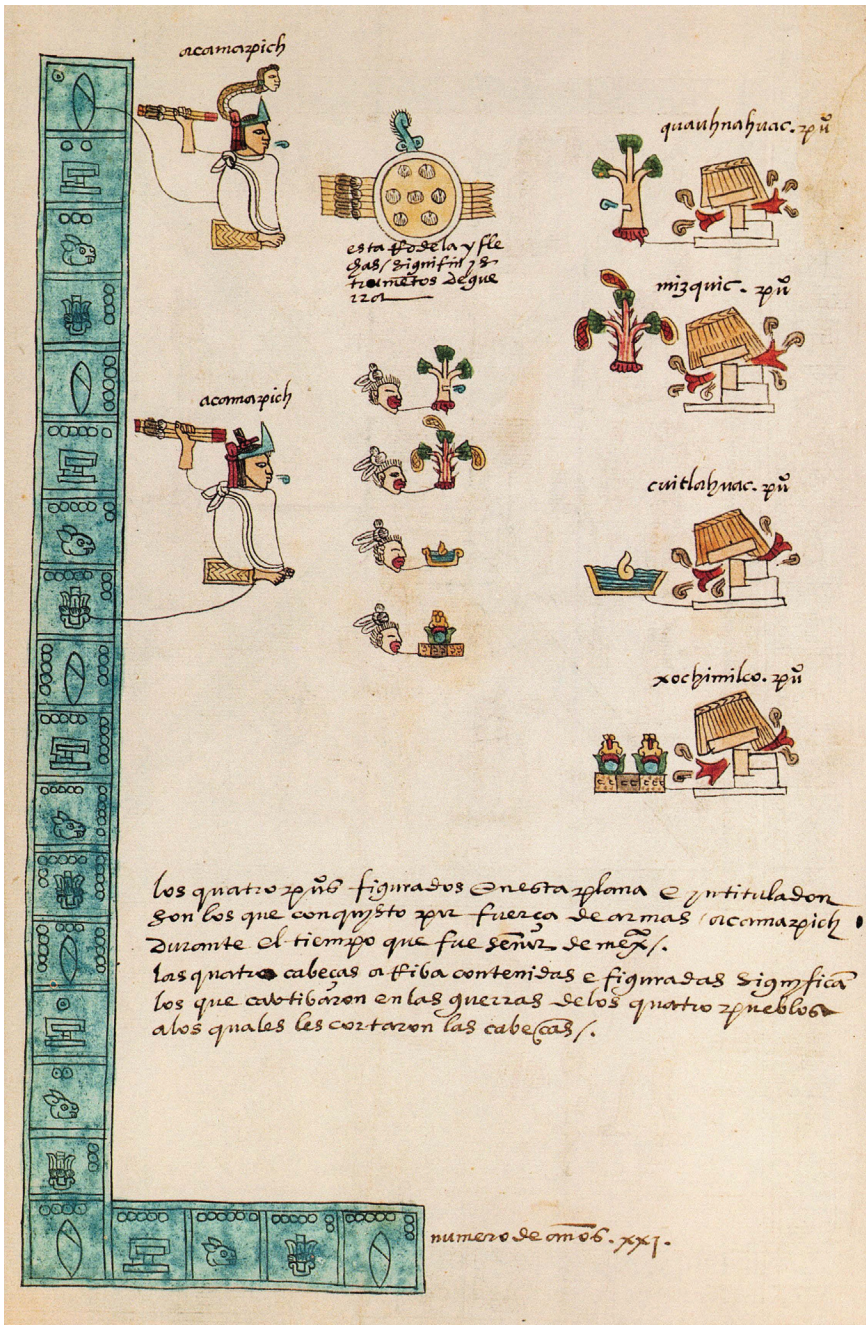 acamapich
quauhnahuac. pū
esta Rodela y fle
chas / significā ys
trumētos de gue
rra
mizquic. pū
acamapich
cuitlahuac. pū
xochimilco. pū
los quatro pūs figurados en esta plana e yntitulados
son los que conquysto por fuerça de armas / acamapich
Durante el tiempo que fue señor de mexco /.
las quatro cabeças aRiba contenidas e figuradas significā
los que cavtibaron en las guerras de los quatro pueblos
a los quales les cortaron las cabeças /.
numero de años. xxj.